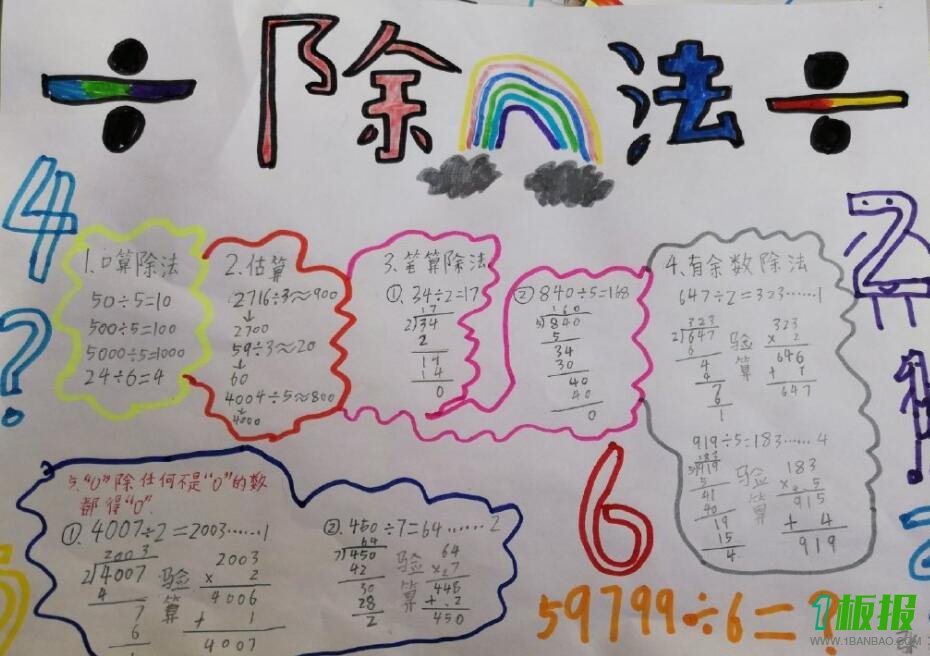 ÷ 除法 ÷
4
2
1.口算除法
50÷5=10
500÷5=100
5000÷5=1000
24÷6=4
2.估算
2716÷3≈900
↓
2700
59÷3≈20
↓
60
4004÷5≈800
↓
4000
3.笔算除法
①.34÷2=17
17
2)34
2
14
14
0
②840÷5=168
160
5)840
5
34
30
40
40
0
4.有余数除法
647÷2=323……1
323
2)647
6
4
4
7
6
1
验算
323
× 2
646
+ 1
647
919÷5=183……4
183
5)919
5
41
40
19
15
4
验算
183
× 5
915
+ 4
919
?
1
5."0"除任何不是"0"的数
都得"0".
①.4007÷2=2003……1
2003
2)4007
4
7
6
1
验算
2003
× 2
4006
+ 1
4007
②.450÷7=64……2
64
7)450
42
30
28
2
验算
64
× 7
448
+ 2
450
6
2
5
59799÷6=?
1板报
WWW.1BANBAO.COM